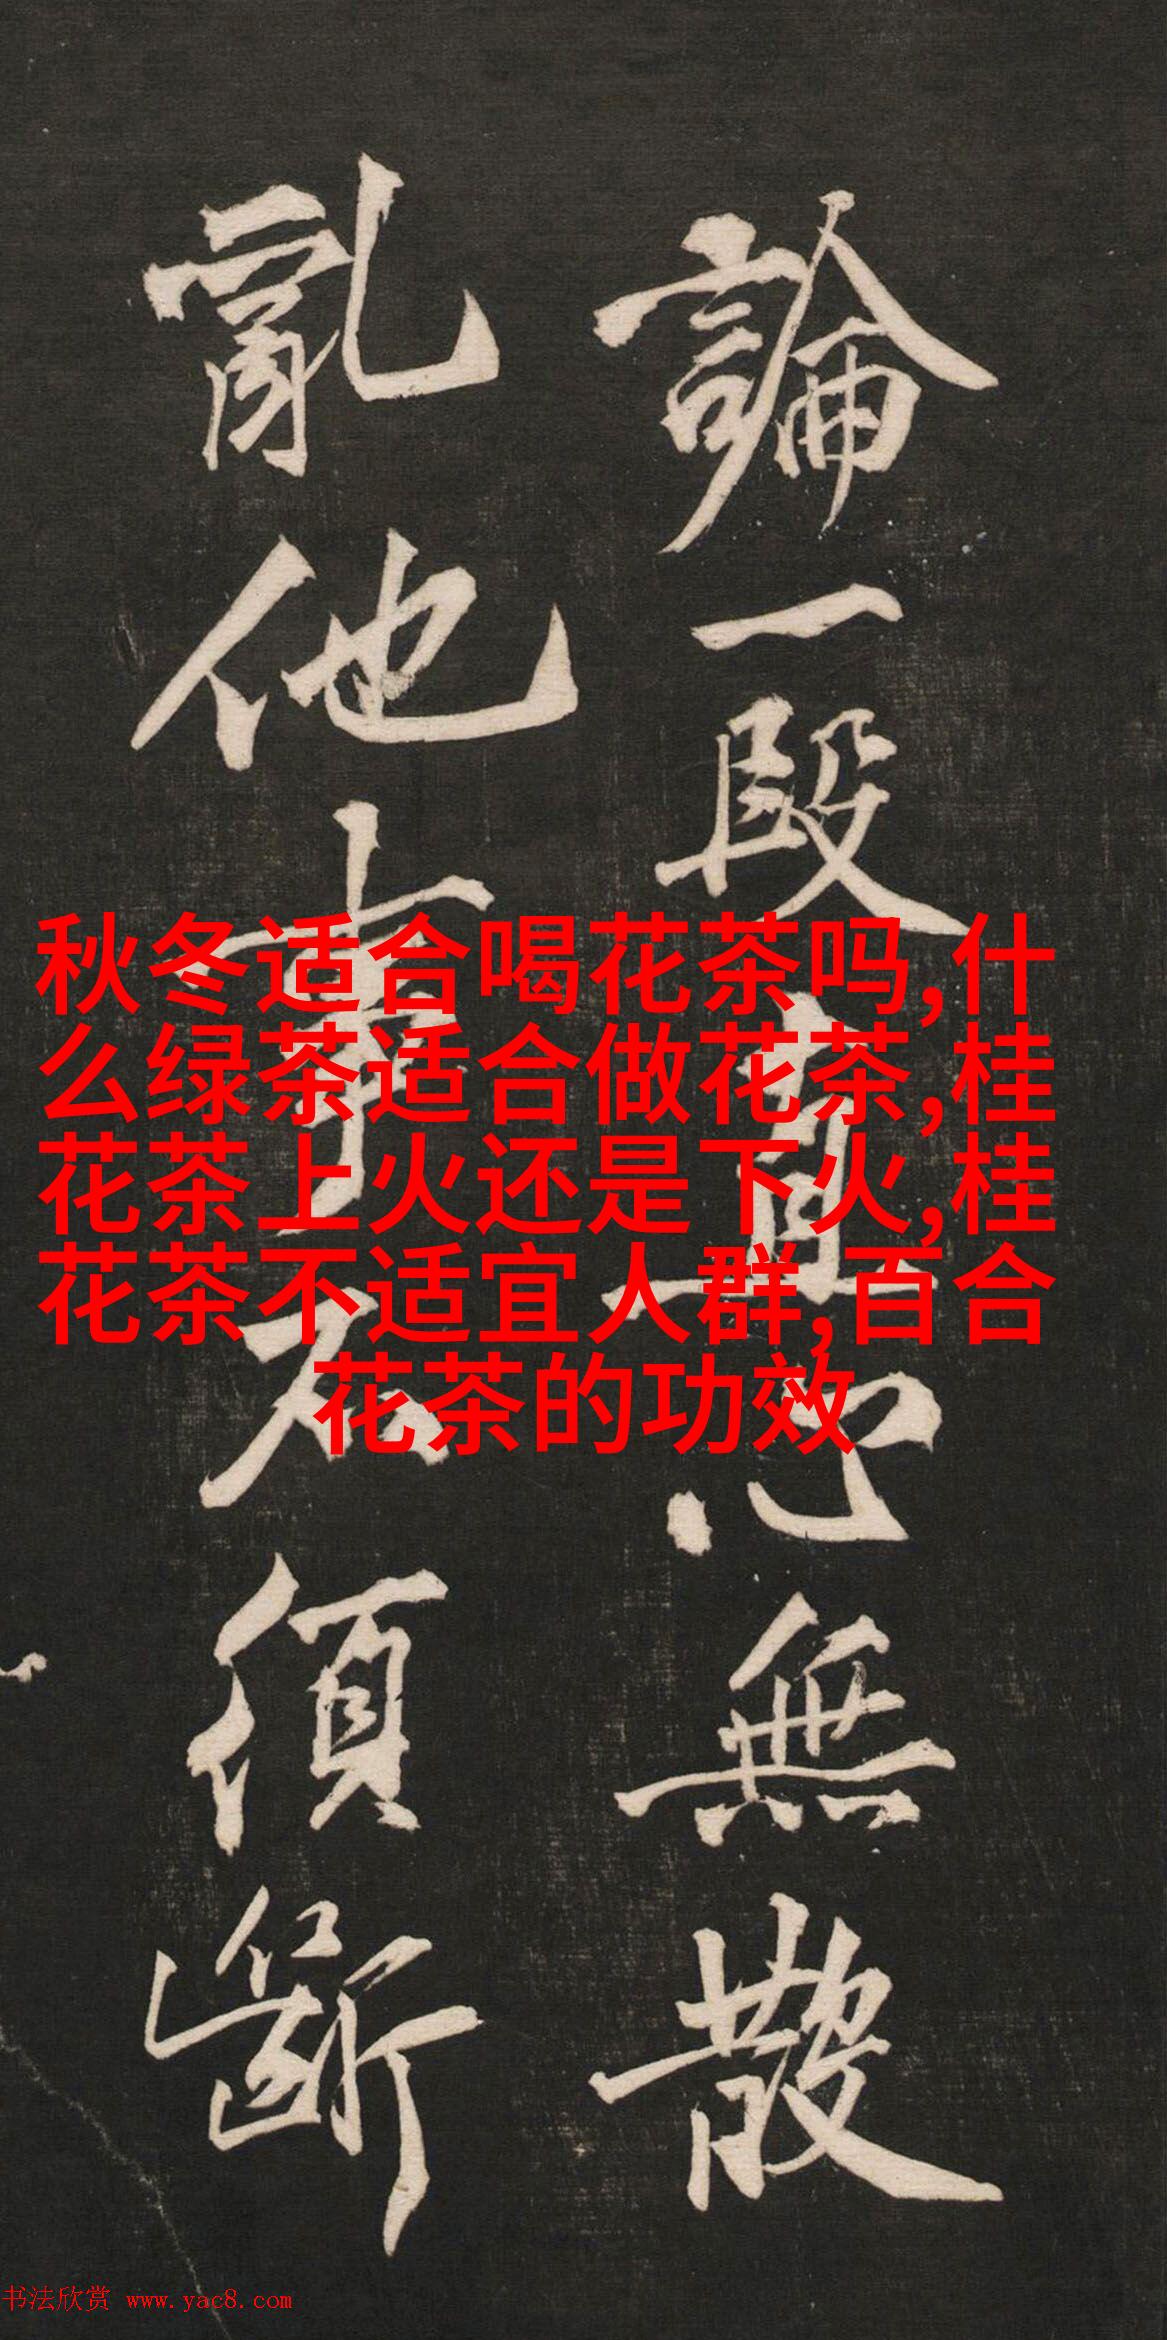 論一段直心無散
亂他事須斷
秋冬适合喝花茶吗,什
么绿茶适合做花茶,桂
花茶上火还是下火,桂
花茶不适宜人群,百合
花茶的功效
书法欣赏 www.yac8.com